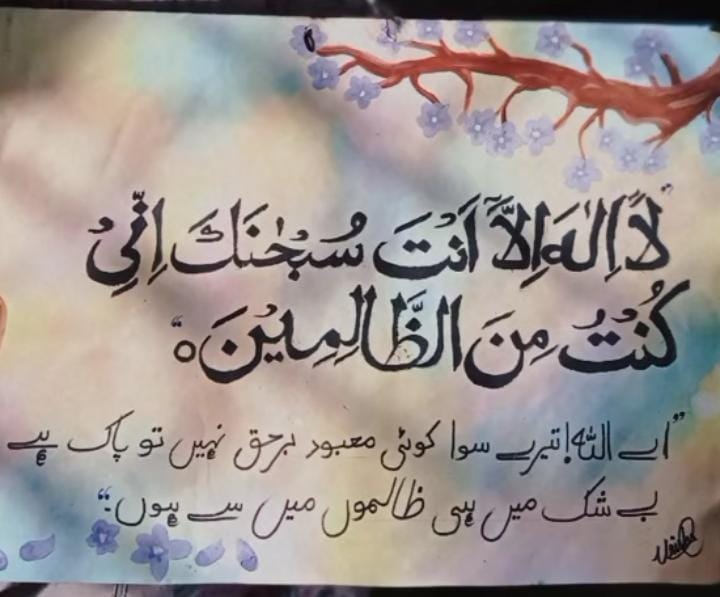 "لَآ اِلٰهَ اِلَّآ اَنْتَ سُبْحٰنَكَ اِنِّيْ
كُنْتُ مِنَ الظَّالِمِيْنَ ہ"
"اے اللہ! تیرے سوا کوئی معبود برحق نہیں تو پاک ہے
بے شک میں ہی ظالموں میں سے ہوں۔"